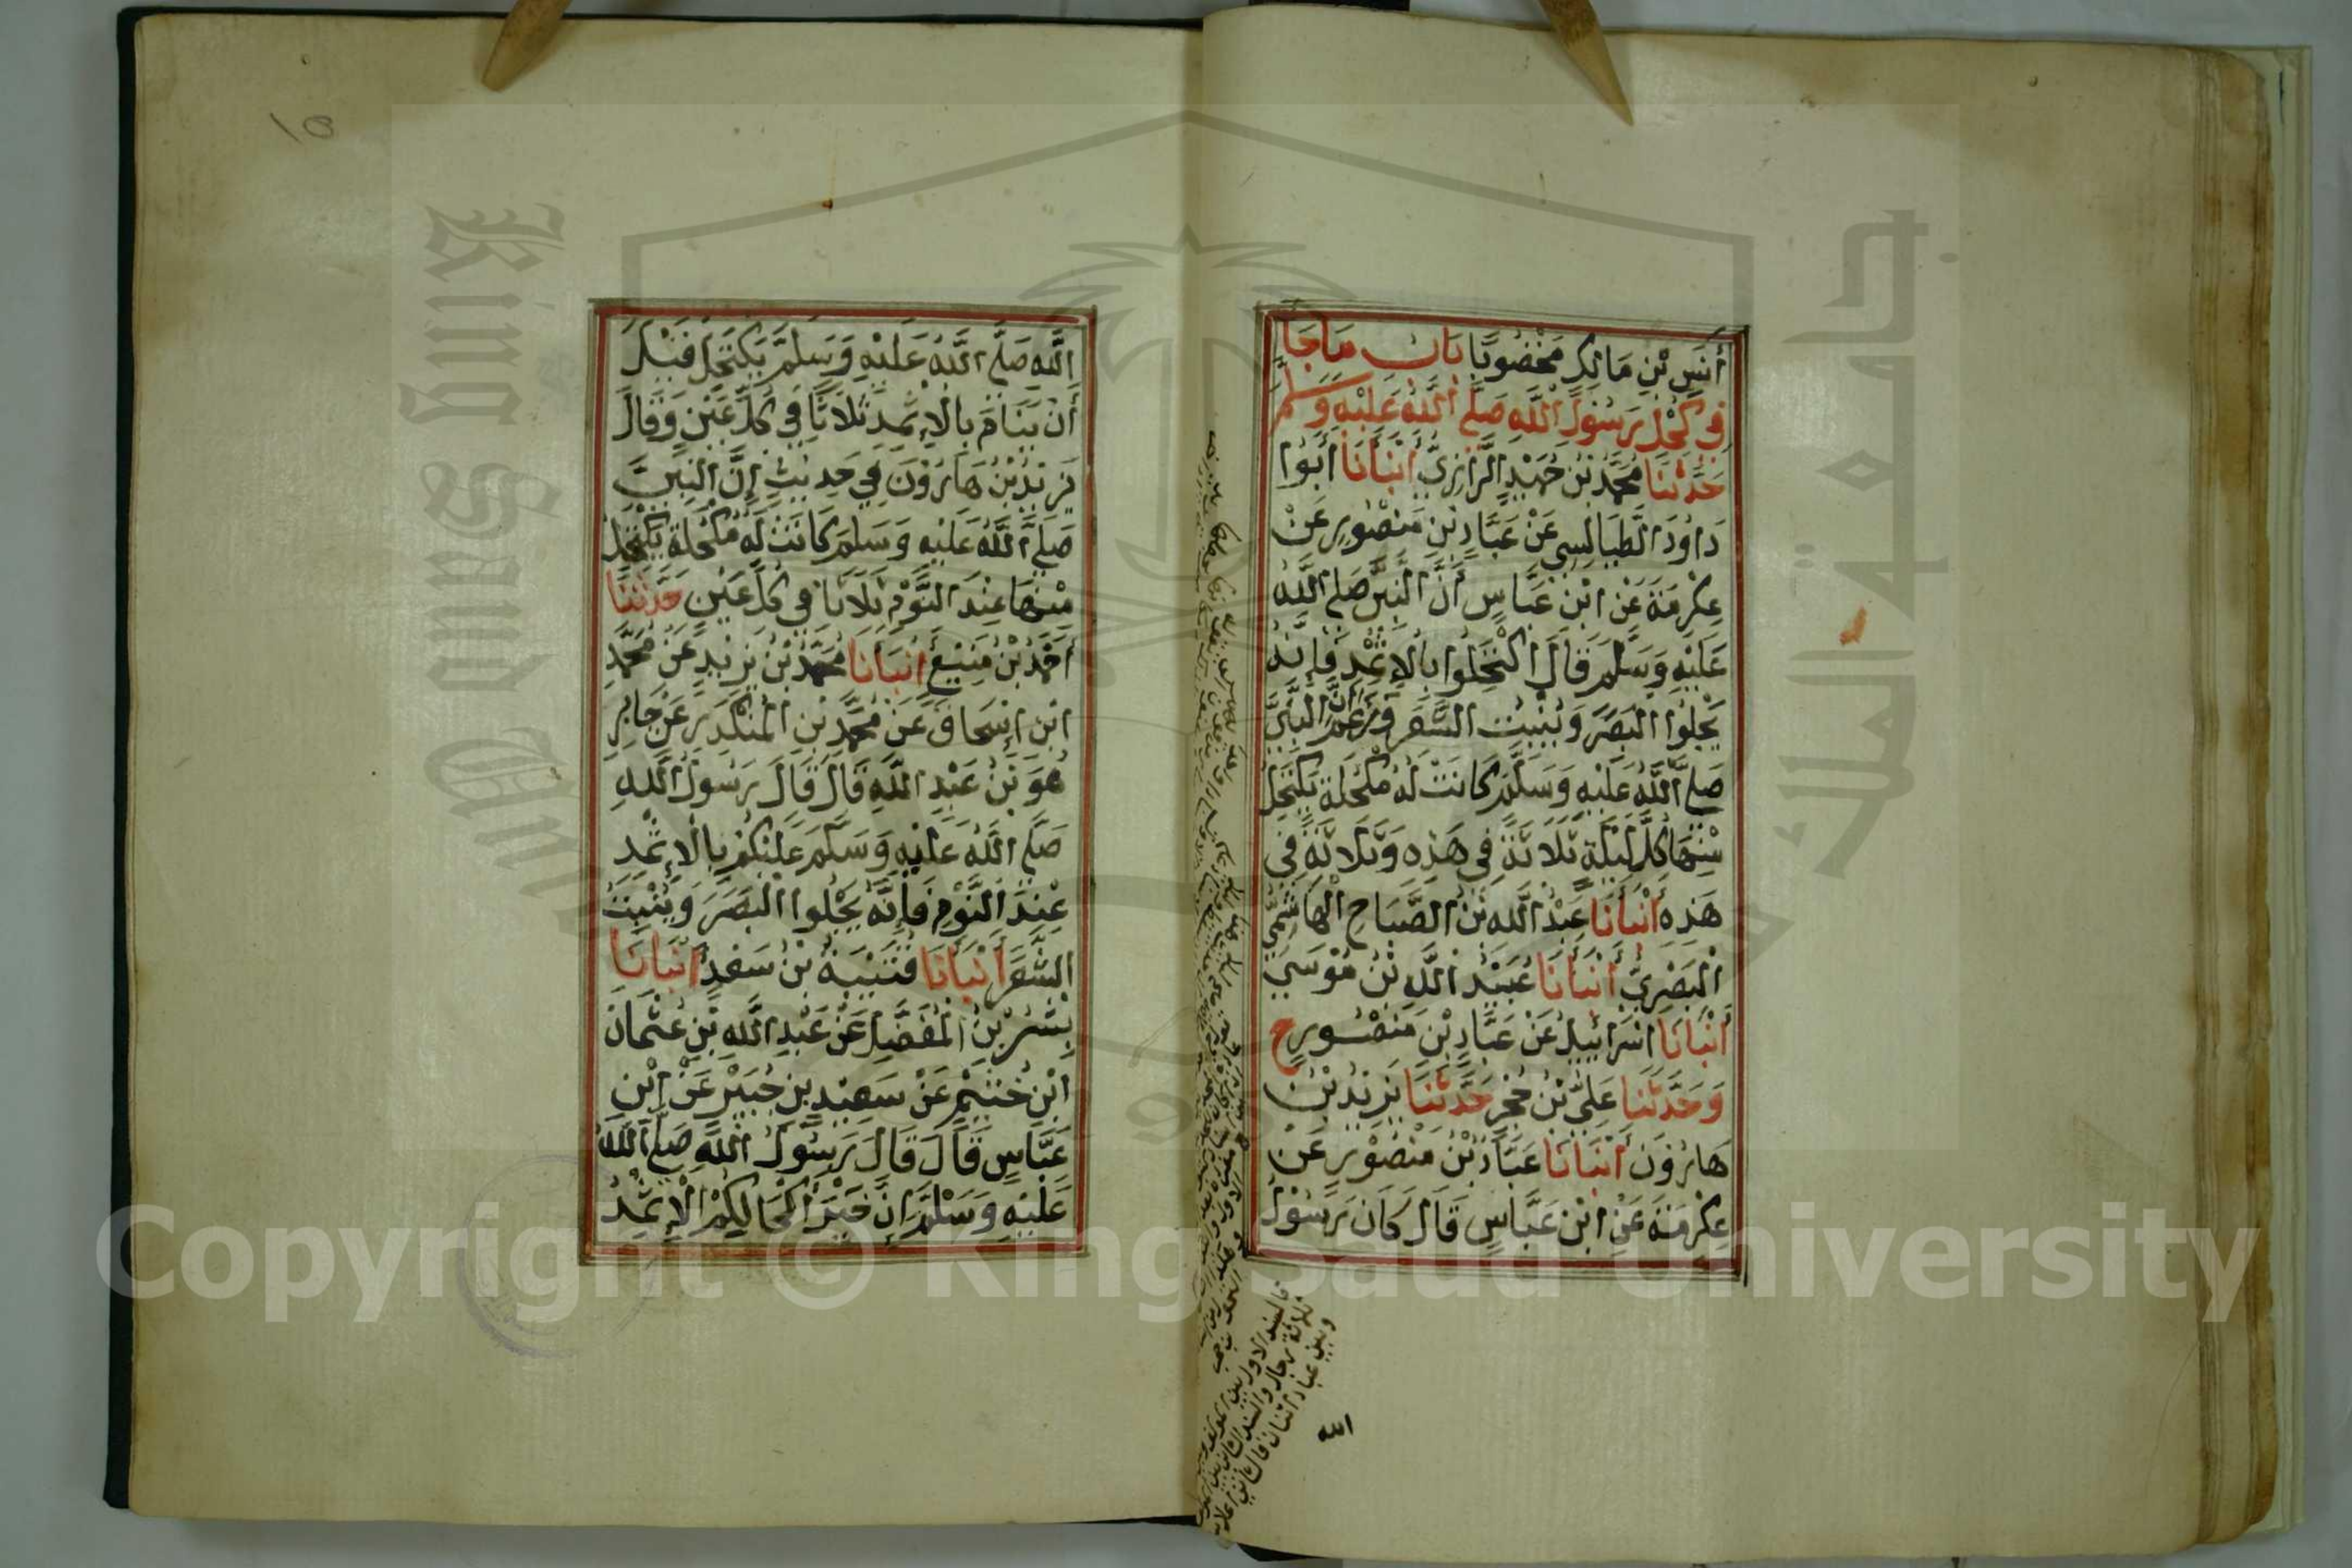 أَنَسِ بْنِ مَالِكٍ مَخْضُوبًا بَابُ مَاجَا
فِي كُحْلِ رَسُولِ اللَّهِ صَلَّى اللَّهُ عَلَيْهِ وَسَلَّمَ
حَدَّثَنَا مُحَمَّدُ بْنُ حُمَيْدٍ الرَّازِيُّ أَنْبَأَنَا أَبُوا
دَاوُدَ الطَّيَالِسِي عَنْ عَبَّادِ بْنِ مَنْصُورٍ عَنْ
عِكْرِمَةَ عَنِ ابْنِ عَبَّاسٍ أَنَّ النَّبِيَّ صَلَى اللَّهُ
عَلَيْهِ وَسَلَّمَ قَالَ اكْتَحِلُوا بِالْإِثْمِدِ فَإِنَّهُ
يَجْلُوا الْبَصَرَ وَيُنْبِتُ الشَّعَرَ وَزَعَمَ أَنَّ النَّبِيَّ
صَلَى اللَّهُ عَلَيْهِ وَسَلَّمَ كَانَتْ لَهُ مُكْحُلَةٌ يَكْتَحِلُ
مِنْهَا كُلَّ لَيْلَةٍ ثَلَاثَةً فِي هَذِهِ وَثَلَاثَةً فِي
هَذِهِ أَنْبَأَنَا عَبْدُ اللَّهِ بْنُ الصَّبَاحِ الْهَاشِمِيُّ
الْبَصْرِيُّ أَنْبَأَنَا عُبَيْدُ اللَّهِ بْنُ مُوسَي
أَنْبَأَنَا اسْرَائِيلُ عَنْ عَبَّادِ بْنِ مَنْصُورٍ ح
وَحَدَّثَنَا عَلِيُّ بْنُ حُجْرٍ حَدَّثَنَا يَزِيدُ بْنُ
هَارُونَ أَنْبَأَنَا عَبَّادُ بْنُ مَنْصُورٍ عَنْ
عِكْرِمَةَ عَنِ ابْنِ عَبَّاسٍ قَالَ كَانَ رَسُولُ
فالسند الاول بين
ثلاثة رجال والسند الثاني
وبين عباد اثنان فالثاني
الله
١٥
اللَّهِ صَلَّى اللَّهُ عَلَيْهِ وَسَلَّمَ يَكْتَحِلُ قَبْلَ
أَنْ يَنَامَ بِالْإِثْمِدِ ثَلَاثًا فِي كُلِّ عَيْنٍ وَقَالَ
يَزِيدُ بْنُ هَارُوْنَ فِي حَدِيثِهِ إِنَّ النَّبِيَّ
صَلَى اللَّهُ عَلَيْهِ وَسَلَمَ كَانَتْ لَهُ مُكْحُلَةٌ يَكْتَحِلُ
مِنْهَا عِنْدَ النَّوْمِ ثَلَاثًا فِي كُلِّ عَيْنٍ حَدَّثَنَا
أَحْمَدُ بْنُ مَنِيعٍ أَنْبَأَنَا مُحَمَّدُ بْنُ يَزِيدٍ عَنْ مُحَمَّدِ
ابْنِ إِسْحَاقَ عَنْ مُحَمَّدِ بْنِ الْمُنْكَدِرِ عَنْ جَابِرٍ
هُوَ بْنُ عَبْدِ اللَّهِ قَالَ قَالَ رَسُولُ اللَّهِ
صَلَّى اللَّهُ عَلَيْهِ وَسَلَّمَ عَلَيْكُمْ بِالْإِثْمِدِ
عِنْدَ النَّوْمِ فَإِنَّهُ يَجْلُوا الْبَصَرَ وَيُنْبِتُ
الشَّعَرَ أَنْبَأَنَا قُتَيْبَةُ بْنُ سَعِدٍ أَنْبَأَنَا
بِشْرُ بْنُ الْمُفَضَّلِ عَنْ عَبْدِ اللَّهِ بْنِ عُثْمَانَ
ابْنِ خُثَيْمٍ عَنْ سَعِيْدِ بْنِ جُبَيْرٍ عَنِ ابْنِ
عَبَّاسٍ قَالَ قَالَ رَسُولُ اللَّهِ صَلَّى اللَّهُ
عَلَيْهِ وَسَلَّمَ إِنَّ خَيْرَ أَكْحَالِكُمُ الْإِثْمِدُ
جامعة الملك سعود
King Saud University
Copyright © King Saud University